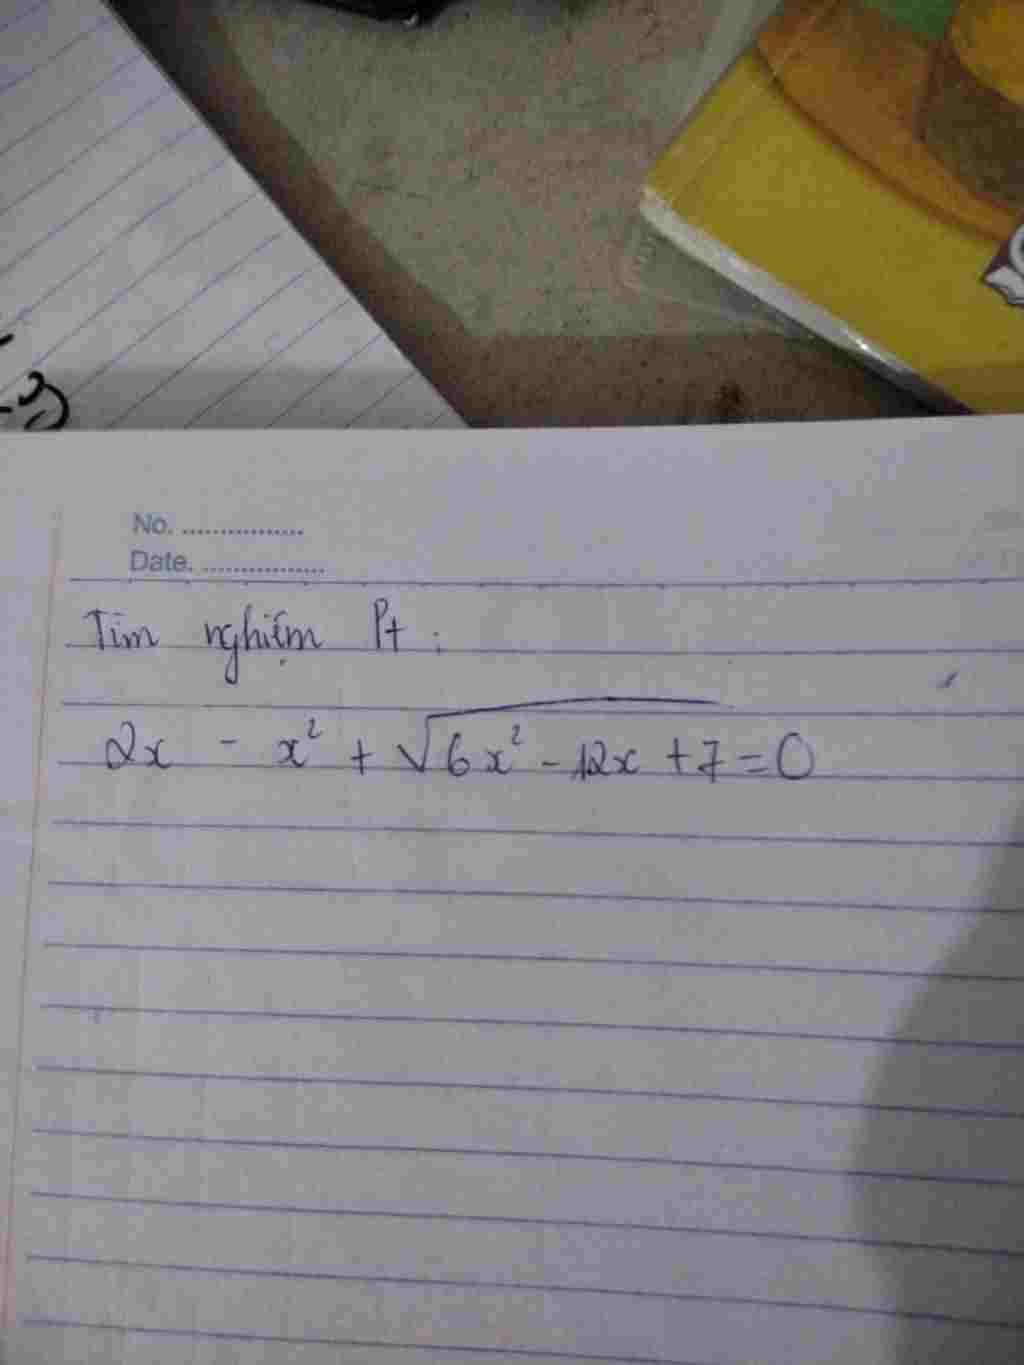 No. ................
Date. ................
Tìm nghiệm Pt :
2x - x² + √(6x² - 12x + 7) = 0